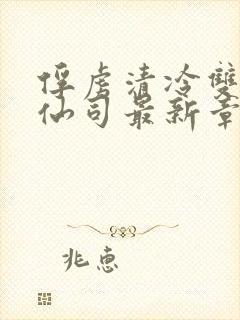 俘虏清冷雙
仙司最新章
兆惠